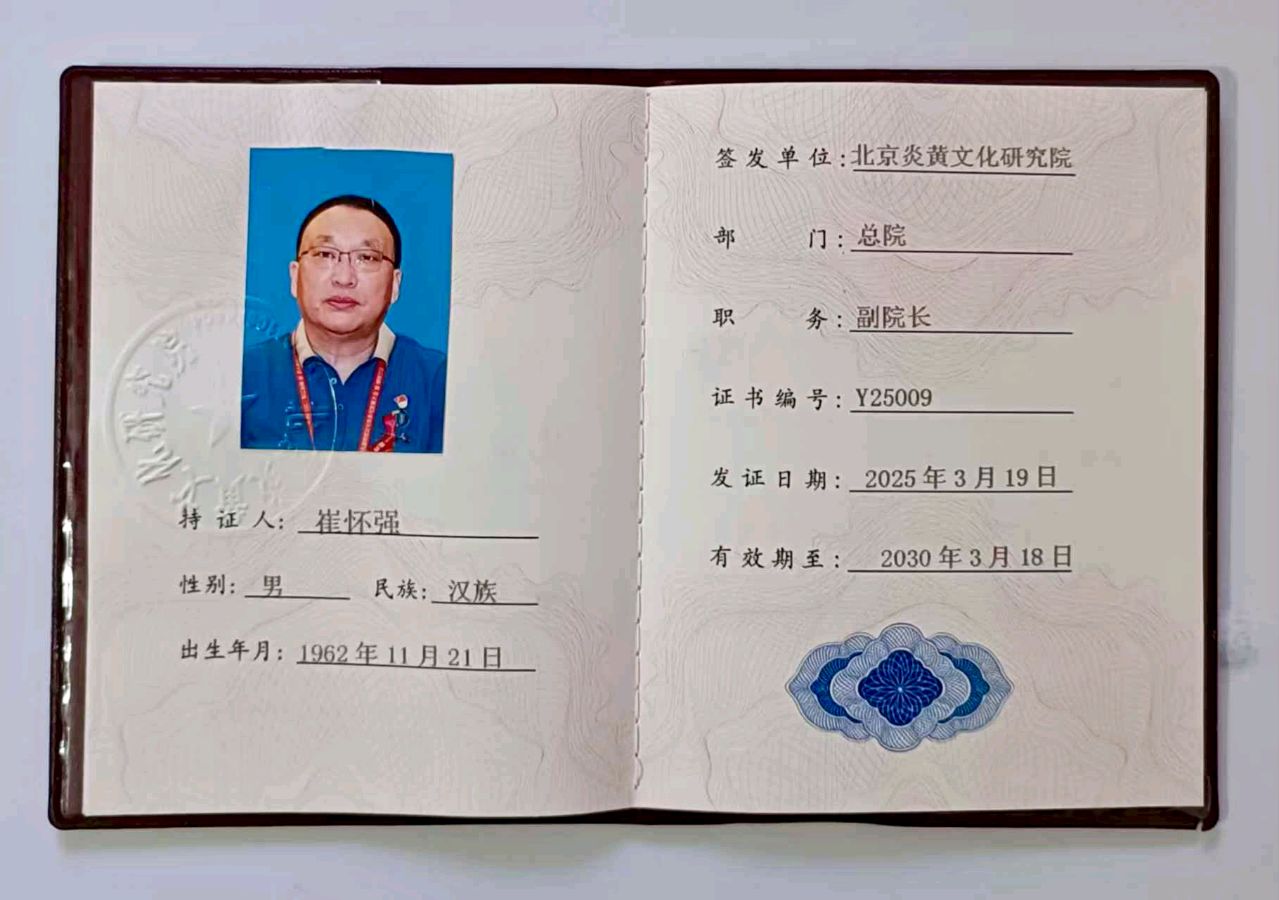 持证人: 崔怀强
性别: 男 民族: 汉族
出生年月: 1962年11月21日
签发单位: 北京炎黄文化研究院
部门: 总院
职务: 副院长
证书编号: Y25009
发证日期: 2025年3月19日
有效期至: 2030年3月18日